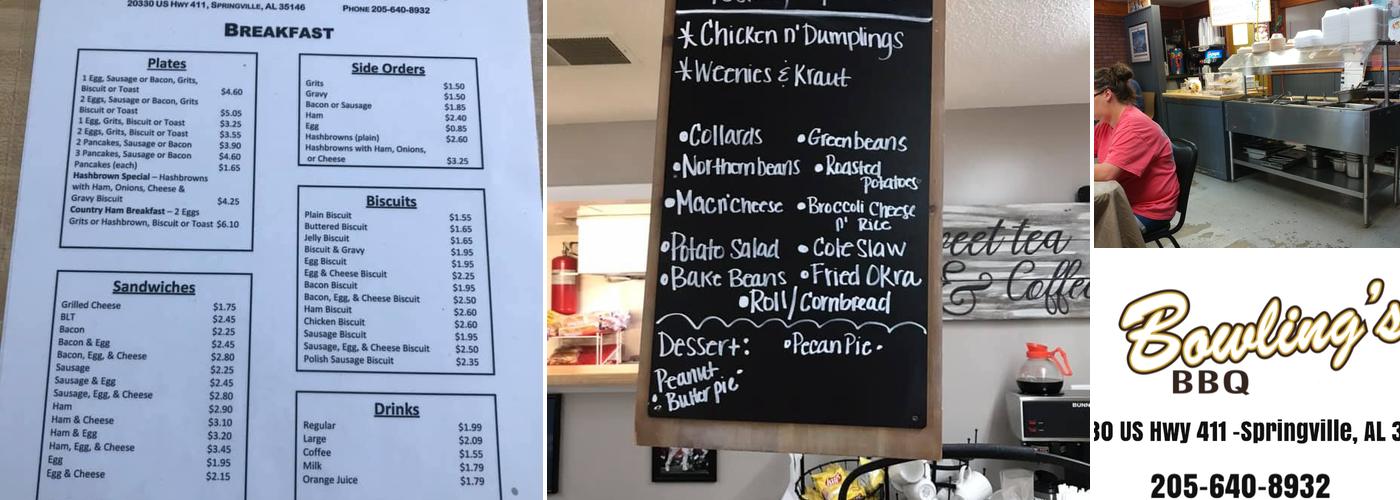 20330 US Hwy 411, Springville, AL 35146
Phone 205-640-8932
Breakfast
Plates
1 Egg, Sausage or Bacon, Grits,
Biscuit or Toast $4.60
2 Eggs, Sausage or Bacon, Grits
Biscuit or Toast $5.05
1 Egg, Grits, Biscuit or Toast $3.25
2 Eggs, Grits, Biscuit or Toast $3.55
2 Pancakes, Sausage or Bacon $3.90
3 Pancakes, Sausage or Bacon $4.60
Pancakes (each) $1.65
Hashbrown Special – Hashbrowns
with Ham, Onions, Cheese &
Gravy Biscuit $4.25
Country Ham Breakfast – 2 Eggs
Grits or Hashbrown, Biscuit or Toast $6.10
Sandwiches
Grilled Cheese $1.75
BLT $2.45
Bacon $2.25
Bacon & Egg $2.45
Bacon, Egg, & Cheese $2.80
Sausage $2.25
Sausage & Egg $2.45
Sausage, Egg, & Cheese $2.80
Ham $2.90
Ham & Cheese $3.10
Ham & Egg $3.20
Ham, Egg, & Cheese $3.45
Egg $1.95
Egg & Cheese $2.15
Side Orders
Grits $1.50
Gravy $1.50
Bacon or Sausage $1.85
Ham $2.40
Egg $0.85
Hashbrowns (plain) $2.60
Hashbrowns with Ham, Onions,
or Cheese $3.25
Biscuits
Plain Biscuit $1.55
Buttered Biscuit $1.65
Jelly Biscuit $1.65
Biscuit & Gravy $1.95
Egg Biscuit $1.95
Egg & Cheese Biscuit $2.25
Bacon Biscuit $1.95
Bacon, Egg, & Cheese Biscuit $2.50
Ham Biscuit $2.60
Chicken Biscuit $2.60
Sausage Biscuit $1.95
Sausage, Egg, & Cheese Biscuit $2.50
Polish Sausage Biscuit $2.35
Drinks
Regular $1.99
Large $2.09
Coffee $1.55
Milk $1.79
Orange Juice $1.79
Chicken n' Dumplings
Weenies & Kraut
•Collards •Greenbeans
•Northern beans •Roasted
Potatoes
•Mac n' cheese •Broccoli Cheese
n' Rice
•Potato Salad •Cole Slaw
•Bake Beans •Fried Okra
•Roll/Cornbread
Dessert: •Pecan Pie•
Peanut
•Butter pie•
eet tea
& Coffee
BUNN
Lay's
Bowling's
BBQ
30 US Hwy 411 -Springville, AL 3
205-640-8932